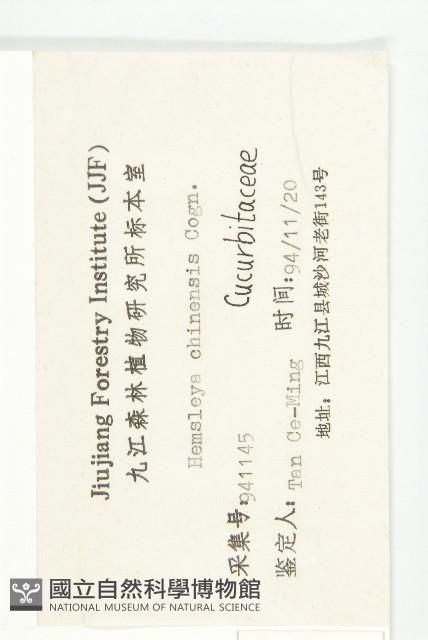 Jiujiang Forestry Institute (JJF)
九江森林植物研究所标本室
Hemsleya chinensis Cogn.
Cucurbitaceae
采集号:941145
鉴定人: Tan Ce-Ming 时间:94/11/20
地址: 江西九江县城沙河老街143号
國立自然科學博物館
NATIONAL MUSEUM OF NATURAL SCIENCE